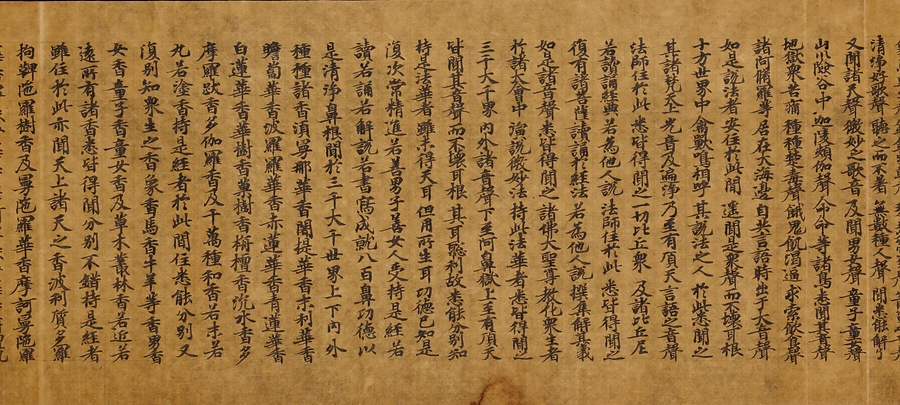 清淨好歌聲 聽之而不著 無數種人聲 聞悉能解了
又聞諸天聲 微妙之歌音 及聞男女聲 童子童女聲
山川險谷中 迦陵頻伽聲 命命等諸鳥 悉聞其音聲
地獄衆苦痛 種種楚毒聲 餓鬼飢渴逼 求索飲食聲
諸阿脩羅等 居在大海邊 自共言語時 出于大音聲
如是說法者 安住於此間 遙聞是衆聲 而不壞耳根
十方世界中 禽獸鳴相呼 其說法之人 於此悉聞之
其諸梵天上 光音及遍淨 乃至有頂天 言語之音聲
法師住於此 悉皆得聞之 一切比丘衆 及諸比丘尼
若讀誦經典 若為他人說 法師住於此 悉皆得聞之
復有諸菩薩 讀誦於經法 若為他人說 撰集解其義
如是諸音聲 悉皆得聞之 諸佛大聖尊 教化衆生者
於諸大會中 演說微妙法 持此法華者 悉皆得聞之
三千大千界 內外諸音聲 下至阿鼻獄 上至有頂天
皆聞其音聲 而不壞耳根 其耳聰利故 悉能分別知
持是法華者 雖未得天耳 但用所生耳 功德已如是
復次常精進若善男子善女人受持是經若
讀若誦若解說若書寫成就八百鼻功德以
是清淨鼻根聞於三千大千世界上下內外
種種諸香須曼那華香闍提華香末利華香
瞻蔔華香波羅羅華香赤蓮華香青蓮華香
白蓮華香華樹香菓樹香栴檀香沉水香多
摩羅跋香多伽羅香及千萬種和香若末若
丸若塗香持是經者於此間住悉能分別又
復別知衆生之香象香馬香牛羊等香男香
女香童子香童女香及草木叢林香若近若
遠所有諸香悉皆得聞分別不錯持是經者
雖住於此亦聞天上諸天之香波利質多羅
拘鞞陀羅樹香及曼陀羅華香摩訶曼陀羅